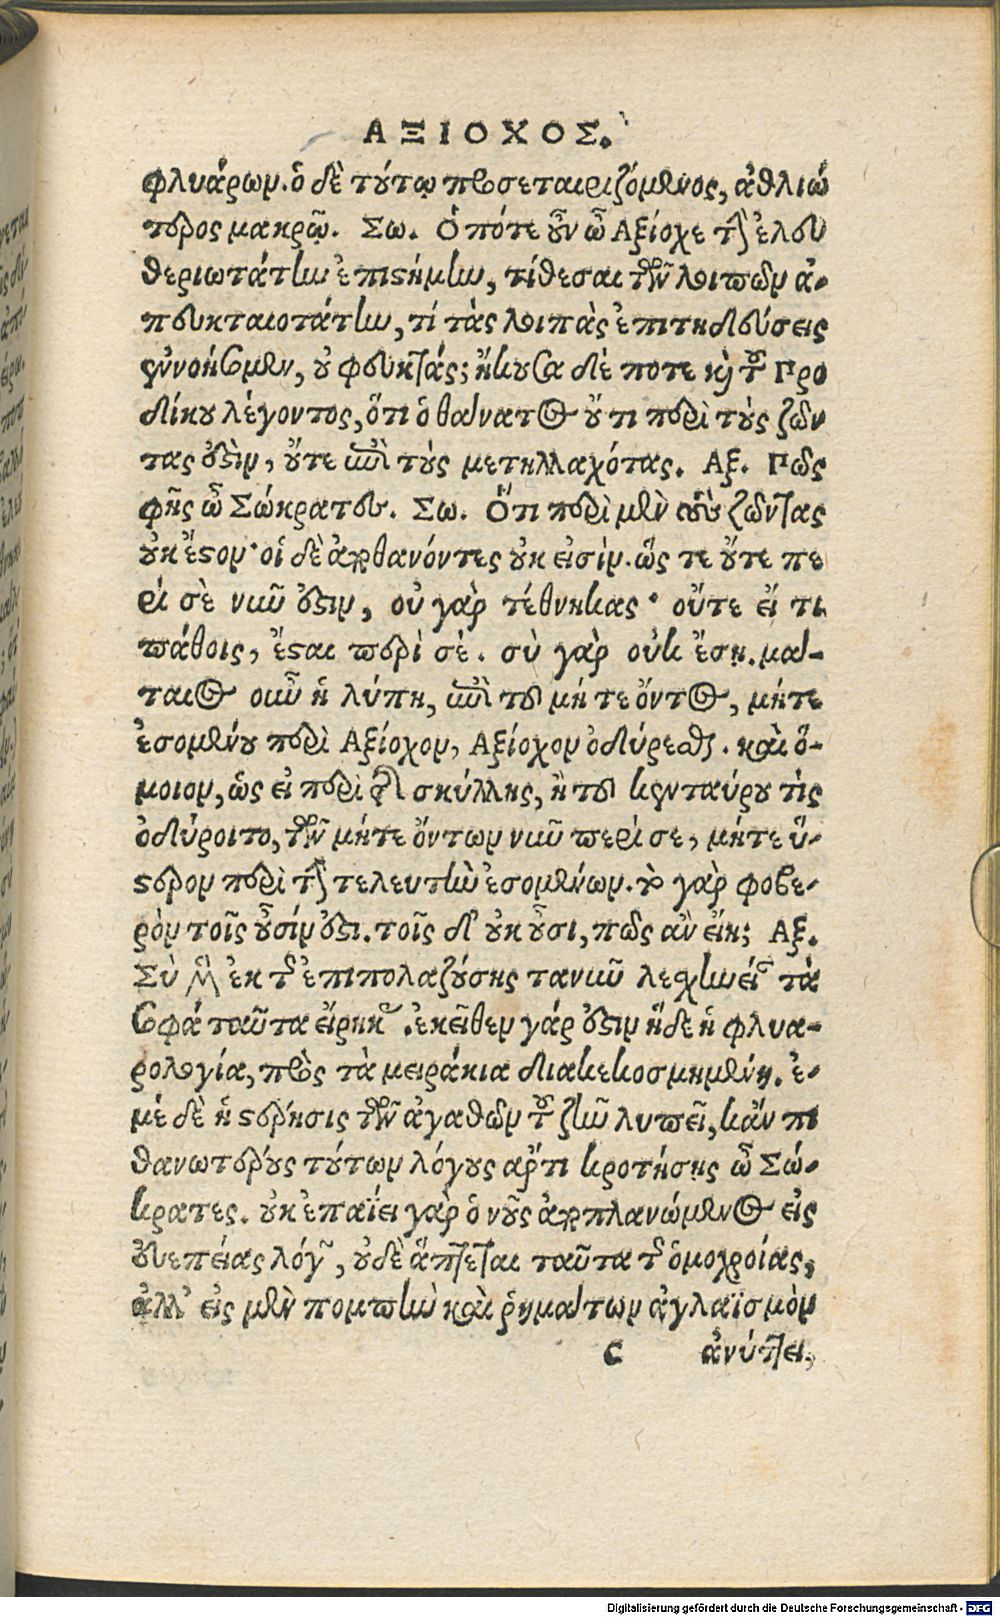 ΑΞΙΟΧΟΣ.
φλυάρων. ὁ δὲ τούτῳ προσεταιριζόμενος, ἀθλιώ
τερος μακρῷ. Σω. Ὁπότε οὖν ὦ Αξίοχε τὴν ἐλευ
θεριωτάτην ἐπιστήμην, τίθεσαι τῶν λοιπῶν ἀ-
πευκταιοτάτην, τί τὰς λοιπὰς ἐπιτηδεύσεις
ἐννοήσομεν, οὐ φευκτάς; ἤκουσα δέ ποτε καὶ τοῦ Προ
δίκου λέγοντος, ὅτι ὁ θάνατος οὔτι περὶ τοὺς ζῶν
τας ἐστὶν, οὔτε περὶ τοὺς μετηλλαχότας. Αξ. Πῶς
φῂς ὦ Σώκρατευ. Σω. Ὅτι περὶ μὲν τοὺς ζῶντας
οὐκ ἔστον· οἱ δὲ ἀποθανόντες οὐκ εἰσίν. ὥς τε οὔτε πε
ρὶ σὲ νῦν ἐστιν, οὐ γὰρ τέθνηκας· οὔτε εἴ τι
πάθοις, ἔσται περὶ σέ. σὺ γὰρ οὐκ ἔσῃ. μά-
ταιος οὖν ἡ λύπη, περὶ τοῦ μή τε ὄντος, μήτε
ἐσομένου περὶ Αξίοχον, Αξίοχον ὀδύρεσθαι. καὶ ὅ-
μοιον, ὡς εἰ περὶ τῆς σκύλλης, ἢ τοῦ κενταύρου τὶς
ὀδύροιτο, τῶν μήτε ὄντων νῦν περὶ σε, μήτε ὕ-
στερον περὶ τὴν τελευτὴν ἐσομένων. τὸ γὰρ φοβε-
ρὸν τοῖς οὖσίν ἐστι. τοῖς δ' οὐκ οὖσι, πῶς ἂν εἴη; Αξ.
Σὺ μὲν ἐκ τῆς ἐπιπολαζούσης τανῦν λεσχηνείας τὰ
σοφά ταῦτα εἴρηκας. ἐκεῖθεν γάρ ἐστιν ἥδε ἡ φλυα-
ρολογία, πρὸς τὰ μειράκια διακεκοσμημένη. ἐ-
μὲ δὲ ἡ στέρησις τῶν ἀγαθῶν τοῦ ζῆν λυπεῖ, κἄν πι
θανωτέρους τούτων λόγους ἄρτι κροτήσῃς ὦ Σώ-
κρατες. οὐκ ἐπαΐει γὰρ ὁ νοῦς ἀποπλανώμενος εἰς
εὐεπείας λόγων, οὐδὲ ἅπτεται ταῦτα τῆς ὁμοχροίας,
ἀλλ' εἰς μὲν πομπὴν καὶ ῥημάτων ἀγλαϊσμὸν
c ἀνύτει,
Digitalisierung gefördert durch die Deutsche Forschungsgemeinschaft - DFG